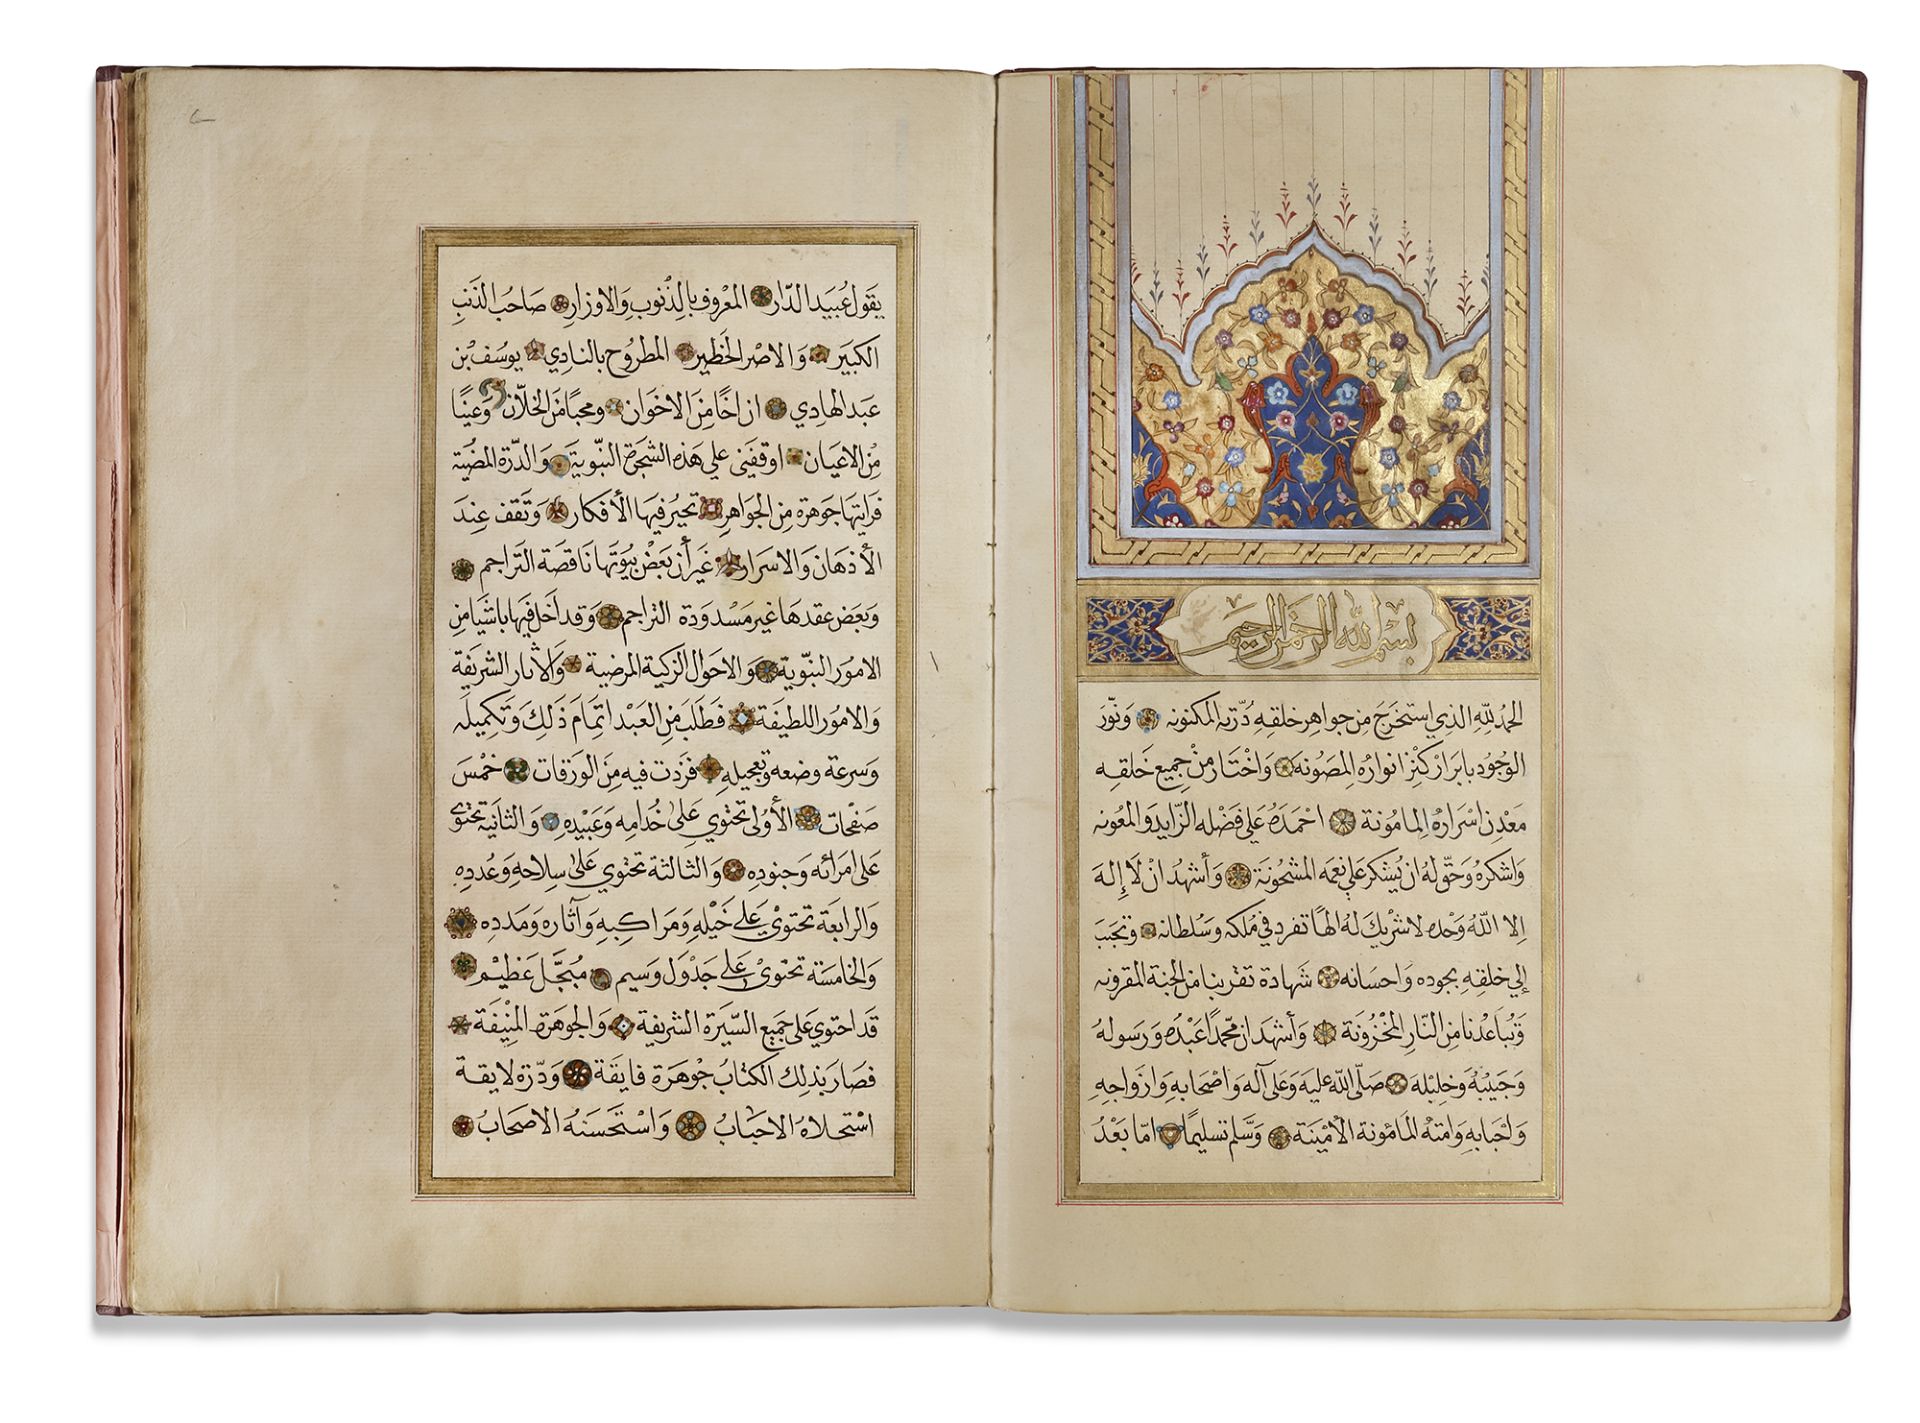 بسم الله الرحمن الرحيم
الحمد لله الذي استخرج من جواهر خلقه دُرّته المكنونه وَنَوّرَ
الوجُود بابراز كنز انواره المصَونه وَاختَار من جميع خلقه
مَعْدِن اسْرَاره المامُونة احمَدهُ عَلى فَضْله الزّايد وَالمعُونه
وَاشكره وَحَقّ لهُ ان يُشكر عَلى نِعَمه المشحُونة وَأشهدُ ان لَا إِلهَ
اِلا اللهُ وَحْدهُ لا شريك لهُ الهاً تفرد في مُلكه وَسُلطانه وَتحَبَبَ
إلي خلقِهِ بجوده وَاحسَانه شهادة تقربنا من الجنة المقرونه
وَتُباعُدنا مِن النّار المخزُونَة وَأشهَد ان محّمداً عَبْدُه وَرَسولهُ
وَحَبيبُه وَخليله صَلّى اللهُ عَليه وَعَلى آله وَاصْحَابهِ وَازوَاجهِ
وَاحبَابهِ وَامته المَامُونة الأمِينَة وَسَّلم تسليماً امّا بَعْدُ
يَقول عُبَيد الدّار المعْروف بالذنُوب وَالاوزارِ صَاحبُ الذنبِ
الكبَير وَالاصْر الخطِير المطرُوح بالنادِي يوسُف بْن
عَبد الهادِي ان اخًا مِنَ الاخوَان ومحبًا مَن الخلاّن وَعَينًا
مِنْ الاعْيان اوقفَني علي هَذه الشجرة النبّويَة وَالدّرة المضُيّة
فرَايتها جَوهَرة مِن الجوَاهرِ تحيرُ فيهَا الأفكار وَتَقف عِندَ
الأذهَان وَالاسرار غيرَ أن بَعْض بيُوتها نَاقصَة التراجم
وَبَعَض عقدهَا غير مَسْدودَة التراجم وَقَد اَخل فيها باشيَا مِن
الامُور النبّوية وَالاحوَال الزكية المرضية وَالآثار الشريفة
وَالامُور اللطيفَة فَطلبَ مِنَ العَبْد اتمَامَ ذَلِكَ وَتكميله
وَسرعَة وضعه وَتعجيله فزدت فيه مِنَ الوَرَقات خمْسَ
صَفْحات الأُولى تحتَوي عَلى خُدامِه وَعَبيدِه وَالثانَية تحتَوى
عَلى امرَائه وَجنوده وَالثالثة تحتوي عَلى سِلاحهِ وَعُددِه
وَالرابعَة تحتَوى عَلى خَيْلهِ وَمَرَاكبهِ وَآثاره وَمَددِه
وَالخامسَة تحتوى عَلَى جَدْول وَسيم مُبجَّل عَظيْم
قَد احتوي عَلى جَميع السّيَرة الشريفة وَالجَوهَرة المُنِيفَة
فَصَار بَذلِك الكتابُ جَوْهَرَة فايقَة وَدّرّة لايقة
اسْتحلاهُ الاحبَابُ وَاسْتحسَنهُ الاصحَابُ